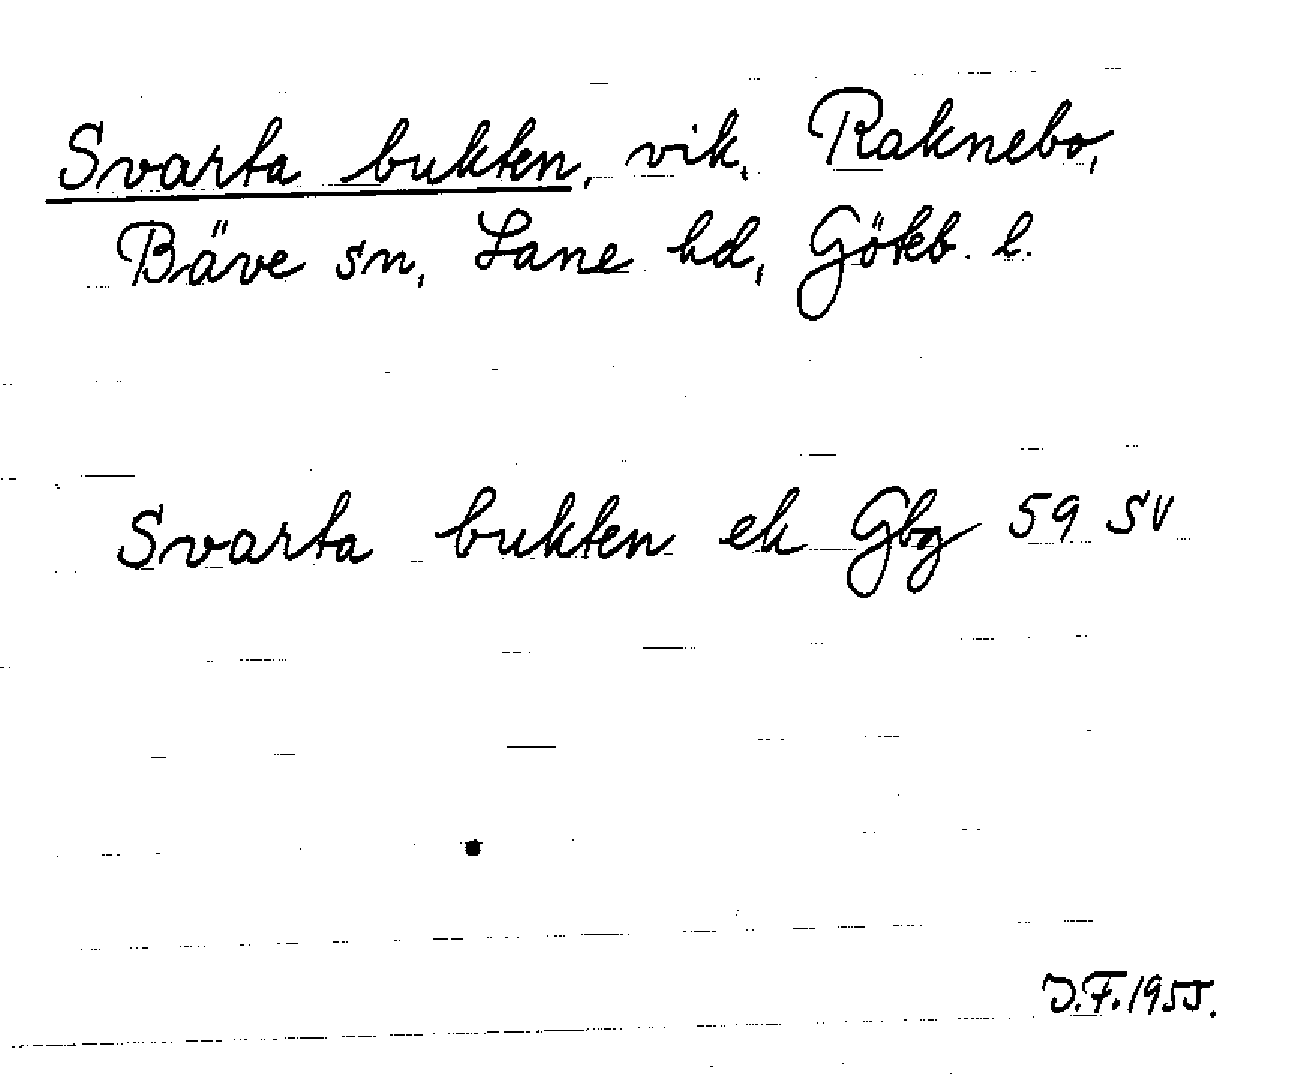 Svarta bukten, vik, Raknebo,
Bäve sn, Lane hd, Göteb. l.
Svarta bukten ek Gbg 59 SV
J.F. 1955.